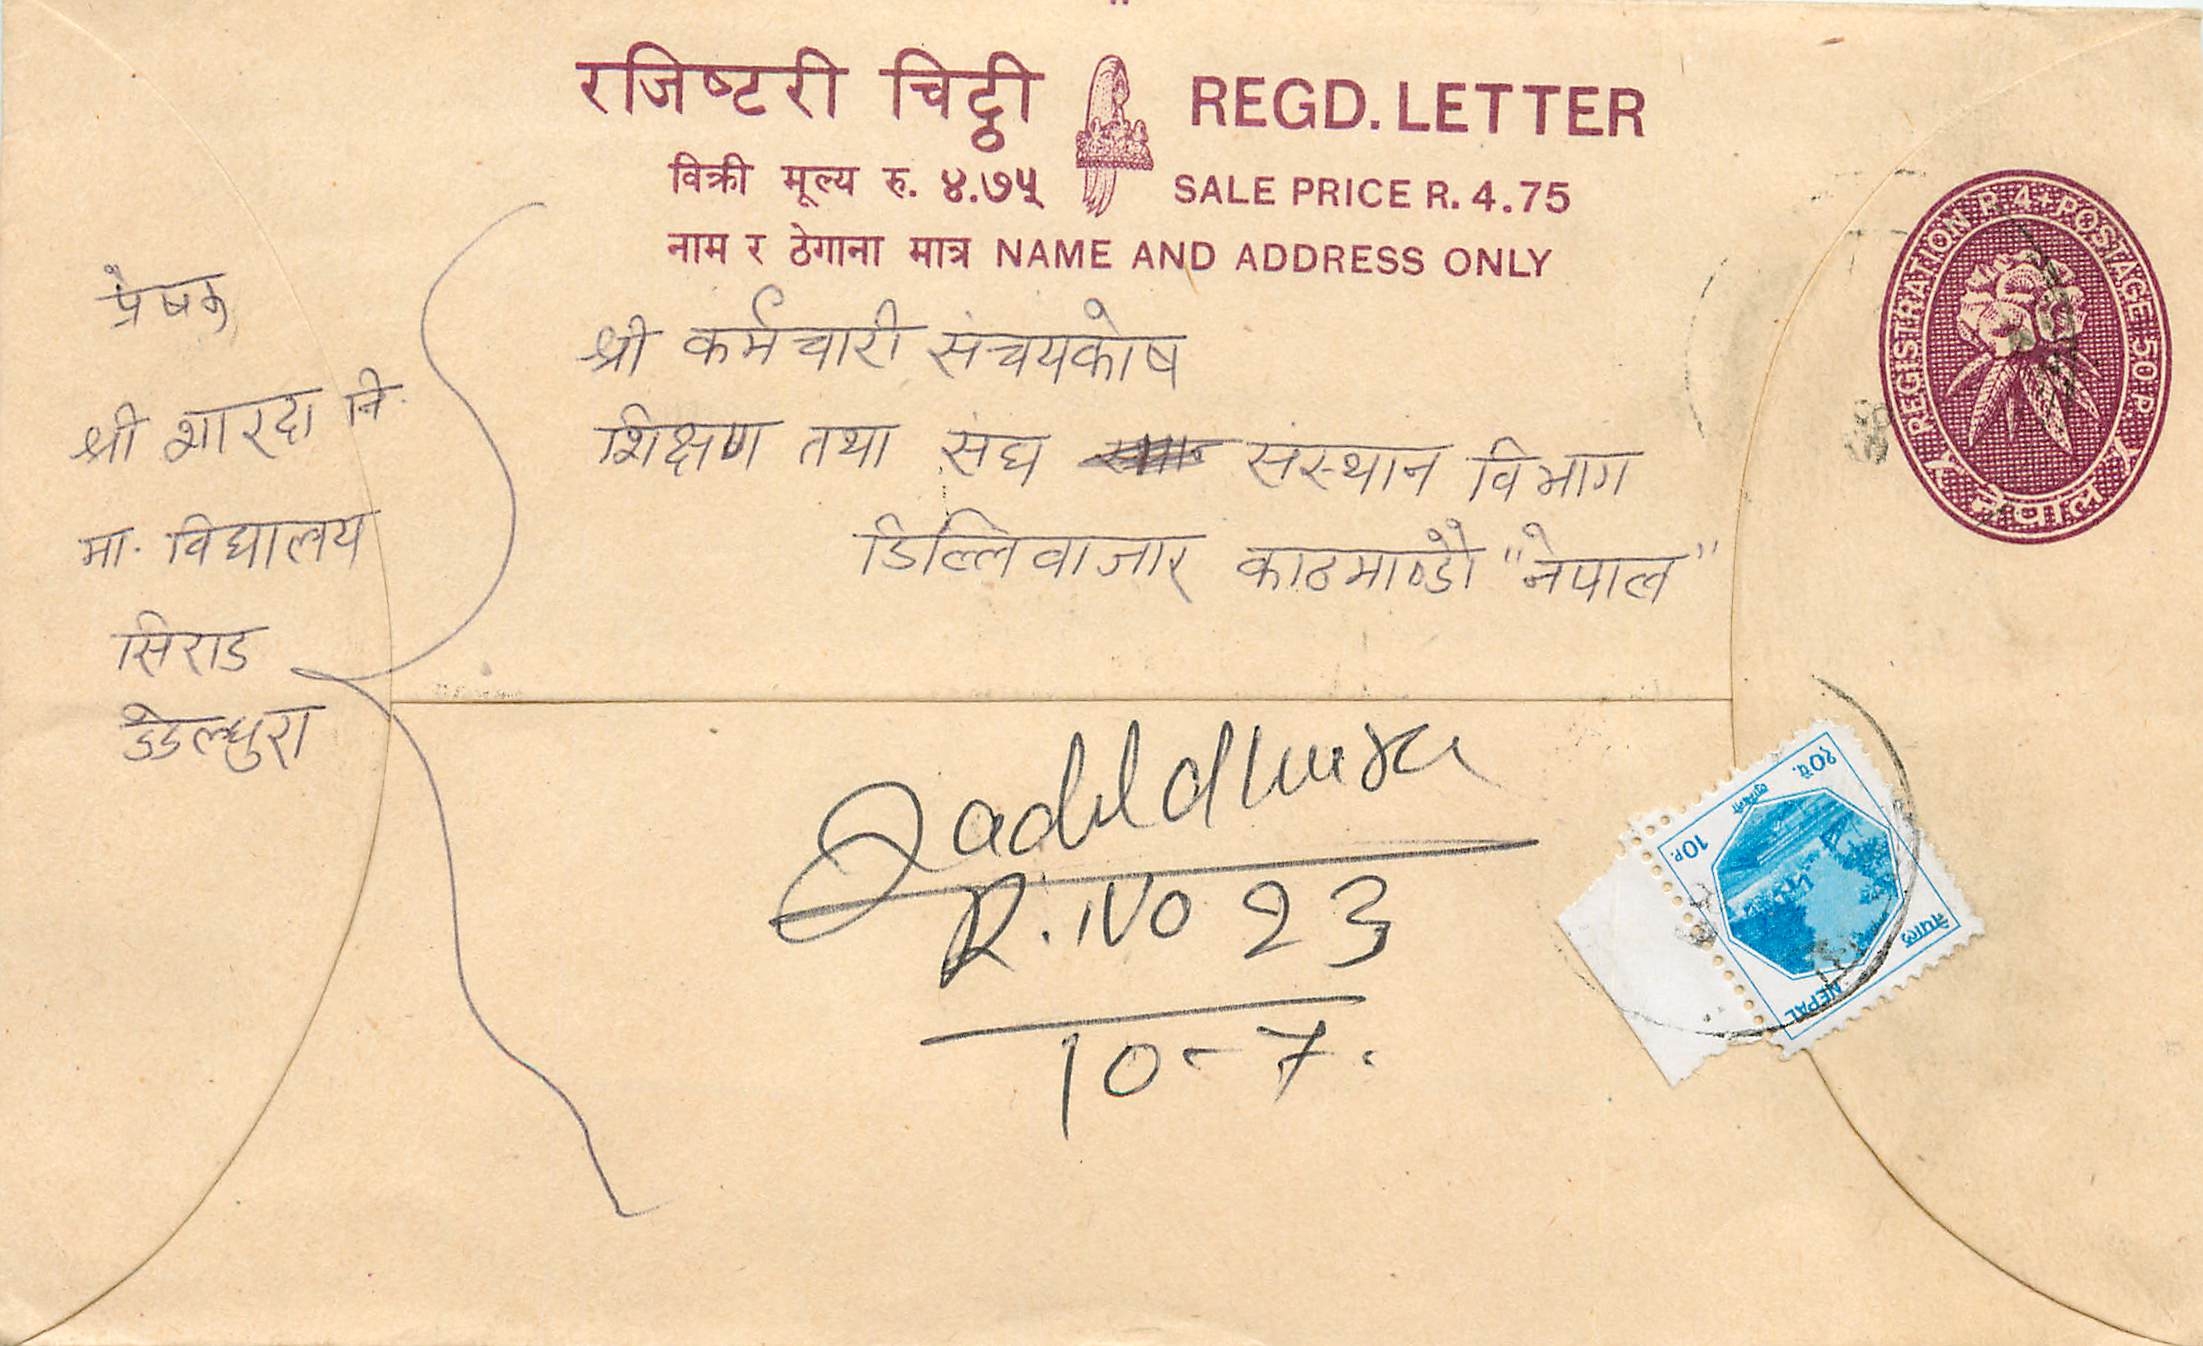 रजिष्टरी चिट्ठी REGD. LETTER
विक्री मूल्य रु. ४.७५ SALE PRICE R. 4.75
नाम र ठेगाना मात्र NAME AND ADDRESS ONLY
REGISTRATION R. 4 + POSTAGE 50 P.
नेपाल
प्रेषक
श्री शारदा नि.
मा. विद्यालय
सिराड
डडेल्धुरा
श्री कर्मचारी संचयकोष
शिक्षण तथा संघ संस्थान विभाग
डिल्लिवाजार काठमाण्डौ "नेपाल"
Dadeldhura
R. NO 23
10-7.
१० पै.
10 P.
नेपाल
NEPAL